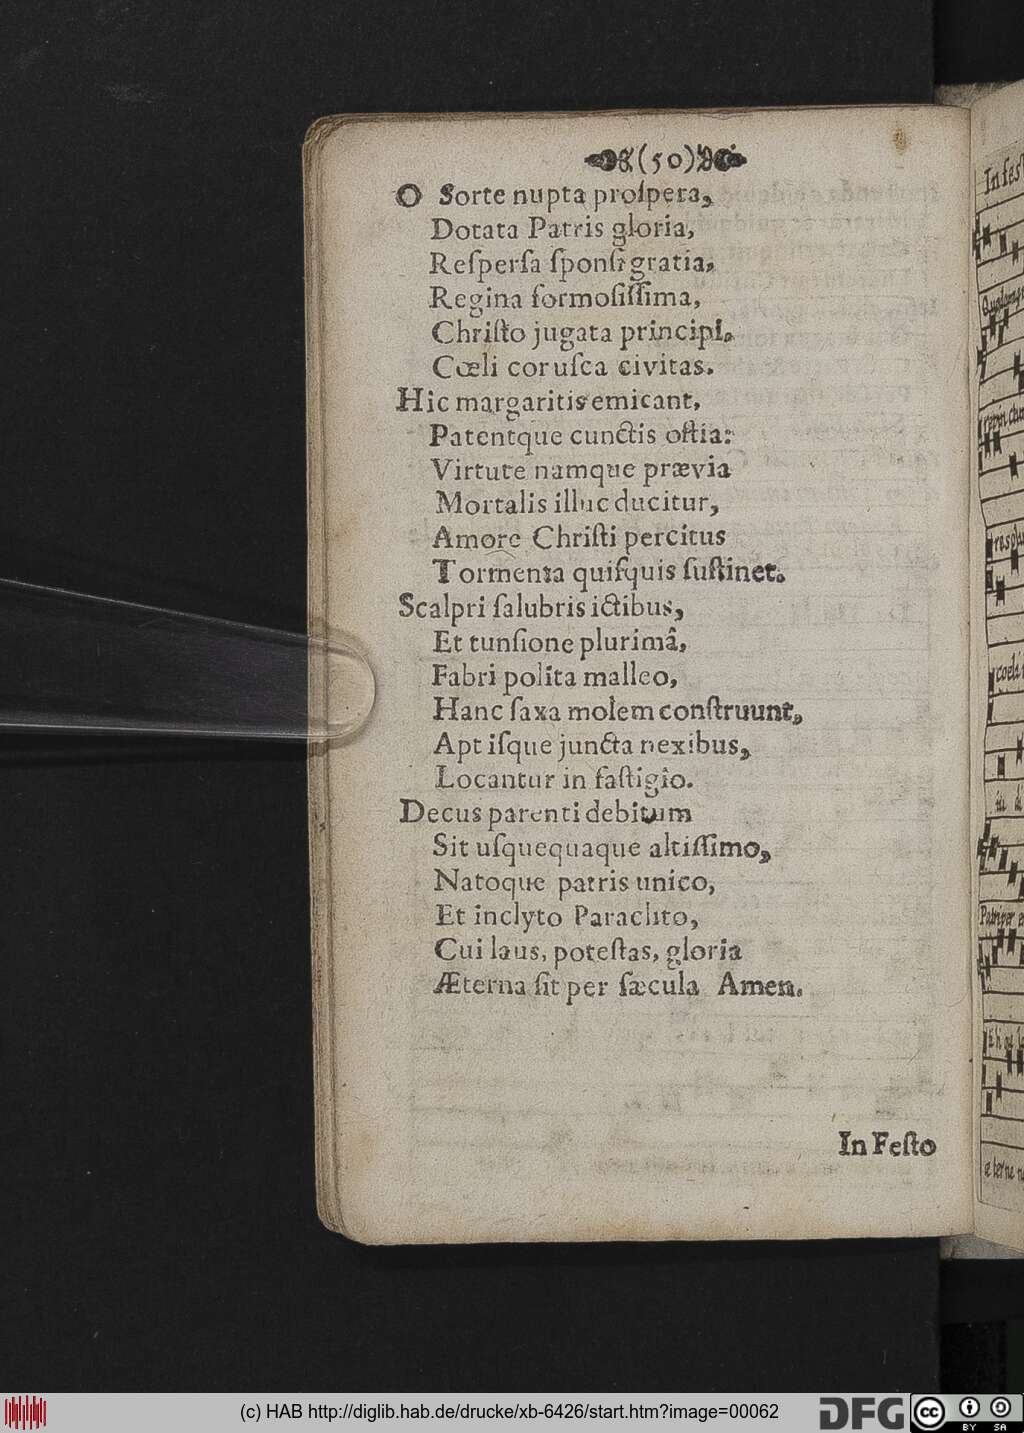 (50)
O Sorte nupta proſpera,
Dotata Patris gloria,
Reſperſa ſponſi gratia,
Regina formoſiſſima,
Chriſto jugata principi.
Cœli coruſca civitas.
Hic margaritis emicant,
Patentque cunctis oſtia:
Virtute namque prævia
Mortalis illuc ducitur,
Amore Chriſti percitus
Tormenta quiſquis ſuſtinet.
Scalpri ſalubris ictibus,
Et tunſione plurimâ,
Fabri polita malleo,
Hanc ſaxa molem conſtruunt,
Aptiſque juncta nexibus,
Locantur in faſtigio.
Decus parenti debitum
Sit uſquequaque altiſſimo,
Natoque patris unico,
Et inclyto Paraclito,
Cui laus, poteſtas, gloria
Æterna ſit per ſæcula Amen.
In Feſto
coeli
(c) HAB http://diglib.hab.de/drucke/xb-6426/start.htm?image=00062
DFG
cc BY SA